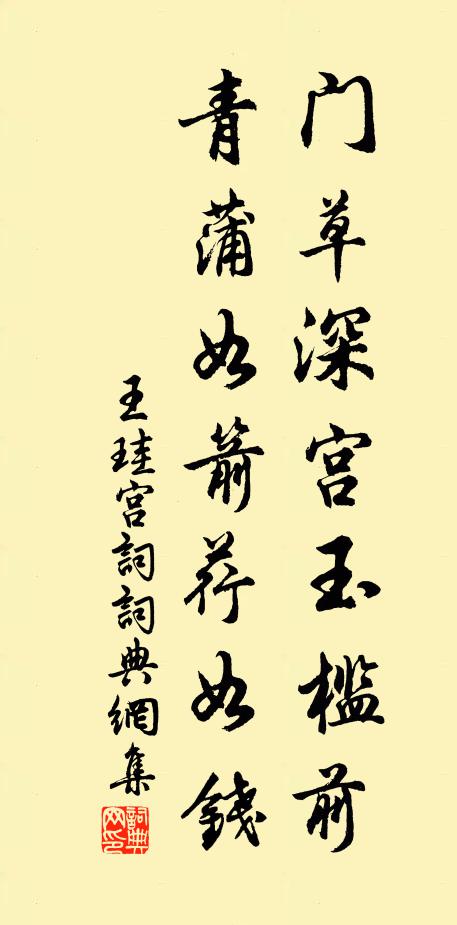 门草深宫玉槛前
青蒲如箭荇如錢
王珪宫詞詞典網集
詞典网印